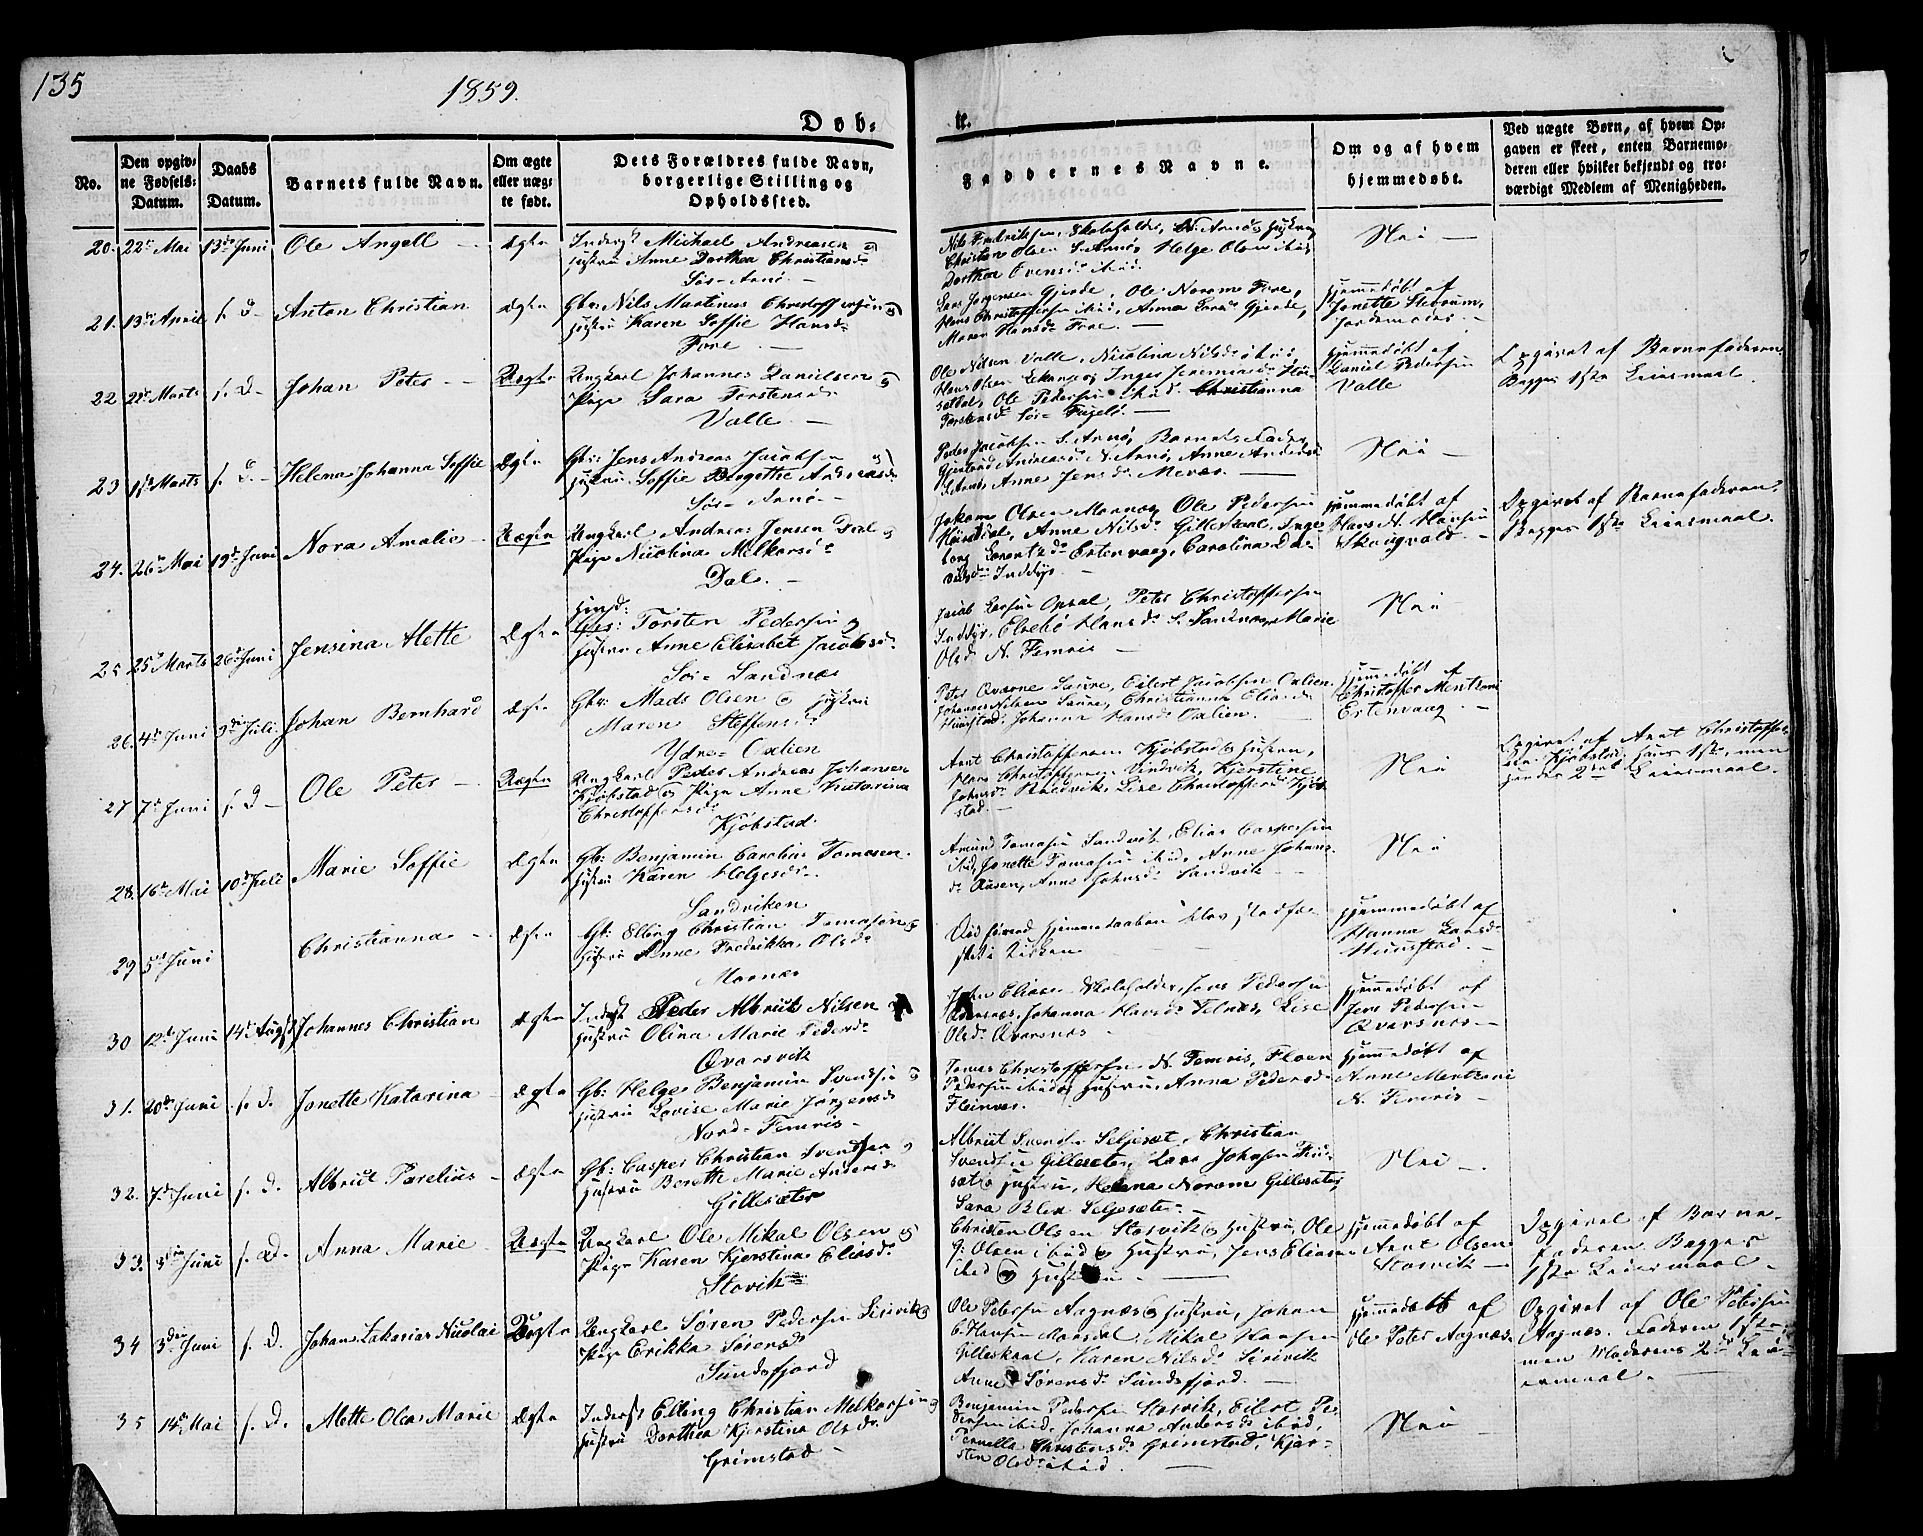 135
1859.
Døb-
te.
No.
Den opgiv-
ne Fødsels-
Datum.
Daabs
Datum.
Barnets fulde Navn.
Om ægte
eller uæg-
te født.
Dets Forældres fulde Navn,
borgerlige Stilling og
Opholdssted.
Faddernes Navne.
Om og af hvem
hjemmedøbt.
Ved uægte Børn, af hvem Op-
gaven er skeet, enten Barnemo-
deren eller hvilket bekjendt og tro-
værdigt Medlem af Menigheden.
20. 22de Mai 13de Juni Ole Angell - Ægte
Inderst Michael Andreasen og
Hustru Anne Dorthea Christiansd.
Sør-Arnø.
Nils Fredriksen, Skoleholder, Arnø, Hustru
Christen Olsen S. Arnø, Helge Olsen ibid,
Dorthea Evensd. ibid.
Nei -
21. 13de April s. D. Anton Christian Ægte
Gbr: Nils Martinus Christoffersen og
Hustru Karen Soffie Hansd.
Fore -
Lars Jørgensen Gjerde, Ole Norum Fore,
Hans Christoffersen ibid, Anna Larsd. Gjerde,
Maren Hansd. Fore. -
Hjemmedøbt af
Jonette Storum,
Jordemoder. -
22 Marts s. D. Johan Peter - Uægte
Ungkarl Johannes Danielsen og
Pige Sara Torstensd.
Valle. -
Ole Nilsen Valle, Nicolina Nilsd. ibid,
Hans Olsen, Inger Jeremiasd.
Ole Pedersen ibid, Christianna
Torstensd. Sør-Fugelø -
Hjemmedøbt af
Daniel Pedersen
Valle
Opgivet af Barnefaderen.
Begges 1ste Leiermaal.
23 Marts s. D. - Helena Johanna Soffie Ægte
Gbr: Jens Andreas Jacobsen og
Hustru Soffie Bergitte Andreasd.
Sør-Arnø -
Peder Jacobsen S. Arnø, Barnets Fader,
Gjertrud Andreasd. N. Arnø, Anne Andersd.
S. Arnø, Anne Jensd. Mevær. -
Nei -
24. 26de Mai 19de Juni Nora Amalie - Uægte
Ungkarl Andreas Jensen Dal og
Pige Nicolina Melkersd.
Dal. -
Jokom Olsen Mornæs, Ole Pedersen
Høiseldal, Anne Nilsd. Gilleskaal, Inge-
borg Lorentzd. Estenvaag, Carolina Da-
nielsd. Inddyr. -
Hjemmedøbt af
Hans N. Hansen
Skaugvold. -
Opgivet af Barnefaderen.
Begges 1ste Leiermaal.
25 25de Marts 26de Juni Jensina Mette Ægte
Huusd:
Gbr: Torsten Pedersen og
Hustru Anne Elisabet Jacobsd.
Sør-Sandnæs
Jacob Larsen Opsal, Peter Christoffersen
Inddyr, Elsebé Hansd. S. Sandnæs, Marie
Olsd. N. Femris -
Nei
26. 4de Juni 3die Juli. Johan Bernhard Ægte
Gbr: Mads Olsen og Hustru
Maren Steffensd.
Ydre-Oxlien
Peter Qværne Saure, Eilert Jacobsen Oxlien
Johannes Nilsen Saure, Christianna Eliasd.
Huustad, Johanna Hansd. Oxlien. -
Hjemmedøbt af
Christoffer Mentzoni
Estenvaag. -
27 7de Juni s. D - Ole Peter - Uægte
Ungkarl Peder Andreas Johansen
Kjøbstad og Pige Anne Katarina
Christoffersd.
Kjøbstad.
Arnt Christoffersen Kjøbstad og Hustru,
Hans Christoffersen Vindvik, Kjerstine
Johnsd. Kaldvik, Lise Christoffersd. Kjøb-
stad. -
Nei
Opgivet af Arnt Christoffer-
sen Kjøbstad, hans 1ste, men
hendes 2det Leiermaal.
28. 16de Mai 10de Juli Marie Soffie Ægte
Gbr: Benjamin Carolius Tomasen.
Hustru Karen Helgesd. -
Sandviken
Amund Tomasen Sandvik, Elias Caspersen
ibid, Jonette Tomasen ibid, Anne Johans-
d. Aasen, Anne Johnsd. Sandvik -
Nei
29 5te Juni Christianna - Ægte
Gb: Elling Christian Tomasen og
Hustru Anne Fredrikka Olsd.
Mornæs
Hjemmedaaben blev stadfæ-
stet i Kirken -
Hjemmedøbt af
Hanna Larsd.
Huustad. -
30 12te Juni 14de Augst Johannes Christian Ægte
Inderst Peder Albrikt Nilsen og
Hustru Olina Marie Pedersd.
Qvarsvik
John Eliasen Skoleholder, Jens Pedersen
Qvarsnæs, Johanna Havisd. Telnæs, Lise
Olsd. Qvarsnæs -
Hjemmedøbt af
Jens Pedersen
Qvarsnæs -
31. 20de Juni s. D. Jonette Katarina - Ægte
Gb: Helge Benjamin Svendsen og
Hustru Lovise Marie Jørgensd.
Nord-Femris -
Tomas Christoffersen N. Femris, Floen
Pedersen ibid og Hustru, Anna Pedersd.
Fleinvær.
Hjemmedøbt af
Anne Mentzoni
N. Femris -
32. 7de Juni s. D. Albrikt Parelius - Ægte
Gb: Casper Christian Svendsen og
Hustru Berethe Marie Andersd.
Gillesæter
Albrikt Svendsen Seljesæt, Christian
Svendsen Gillesæter, Lars Johnsen
og Hustru, Helena Norum Gillesæter,
Sara Blix Seljesæter. -
Nei -
33. 3die Juni s. D. Anna Marie - Uægte
Ungkarl Ole Mikal Olsen og
Pige Karen Kjerstina Eliasd.
Storvik
Christen Olsen Storvik og Hustru, Ole
G: Olsen ibid og Hustru, Jens Eliasen
ibid og Hustru. -
Hjemmedøbt af
Arnt Olsen
Storvik -
Opgivet af Barne-
faderen. Begges
1ste Leiermaal -
34 3die Juni s. D. Johan Zakarias Nicolai Uægte
Ungkarl Søren Pedersen Senvik og
Pige Erikka Sørensd.
Sundsfjord
Ole Petersen Aagnæs og Hustru, Johan
C. Hansen Maasdal, Mikal Hansen
Gilleskaal, Karen Nilsd. Senvik
Anne Sørensd. Sundsfjord. -
Hjemmedøbt af
Ole Peter Aagnæs.
Opgivet af Ole Petersen
Aagnæs. Faderen 1ste,
men Moderens 2det Lei-
ermaal. -
35 14de Mai s. D. Mette Olea Marie Ægte
Inderst Elling Christian Melkersen og
Hustru Dorthea Kjerstina Olsdr.
Grimstad -
Benjamin Pedersen Storvik, Eilert Pe-
dersen ibid, Johanna Andersd. ibid,
Pernella Christensd. Grimstad, Kjer-
sten Olsd. ibid. -
Nei -